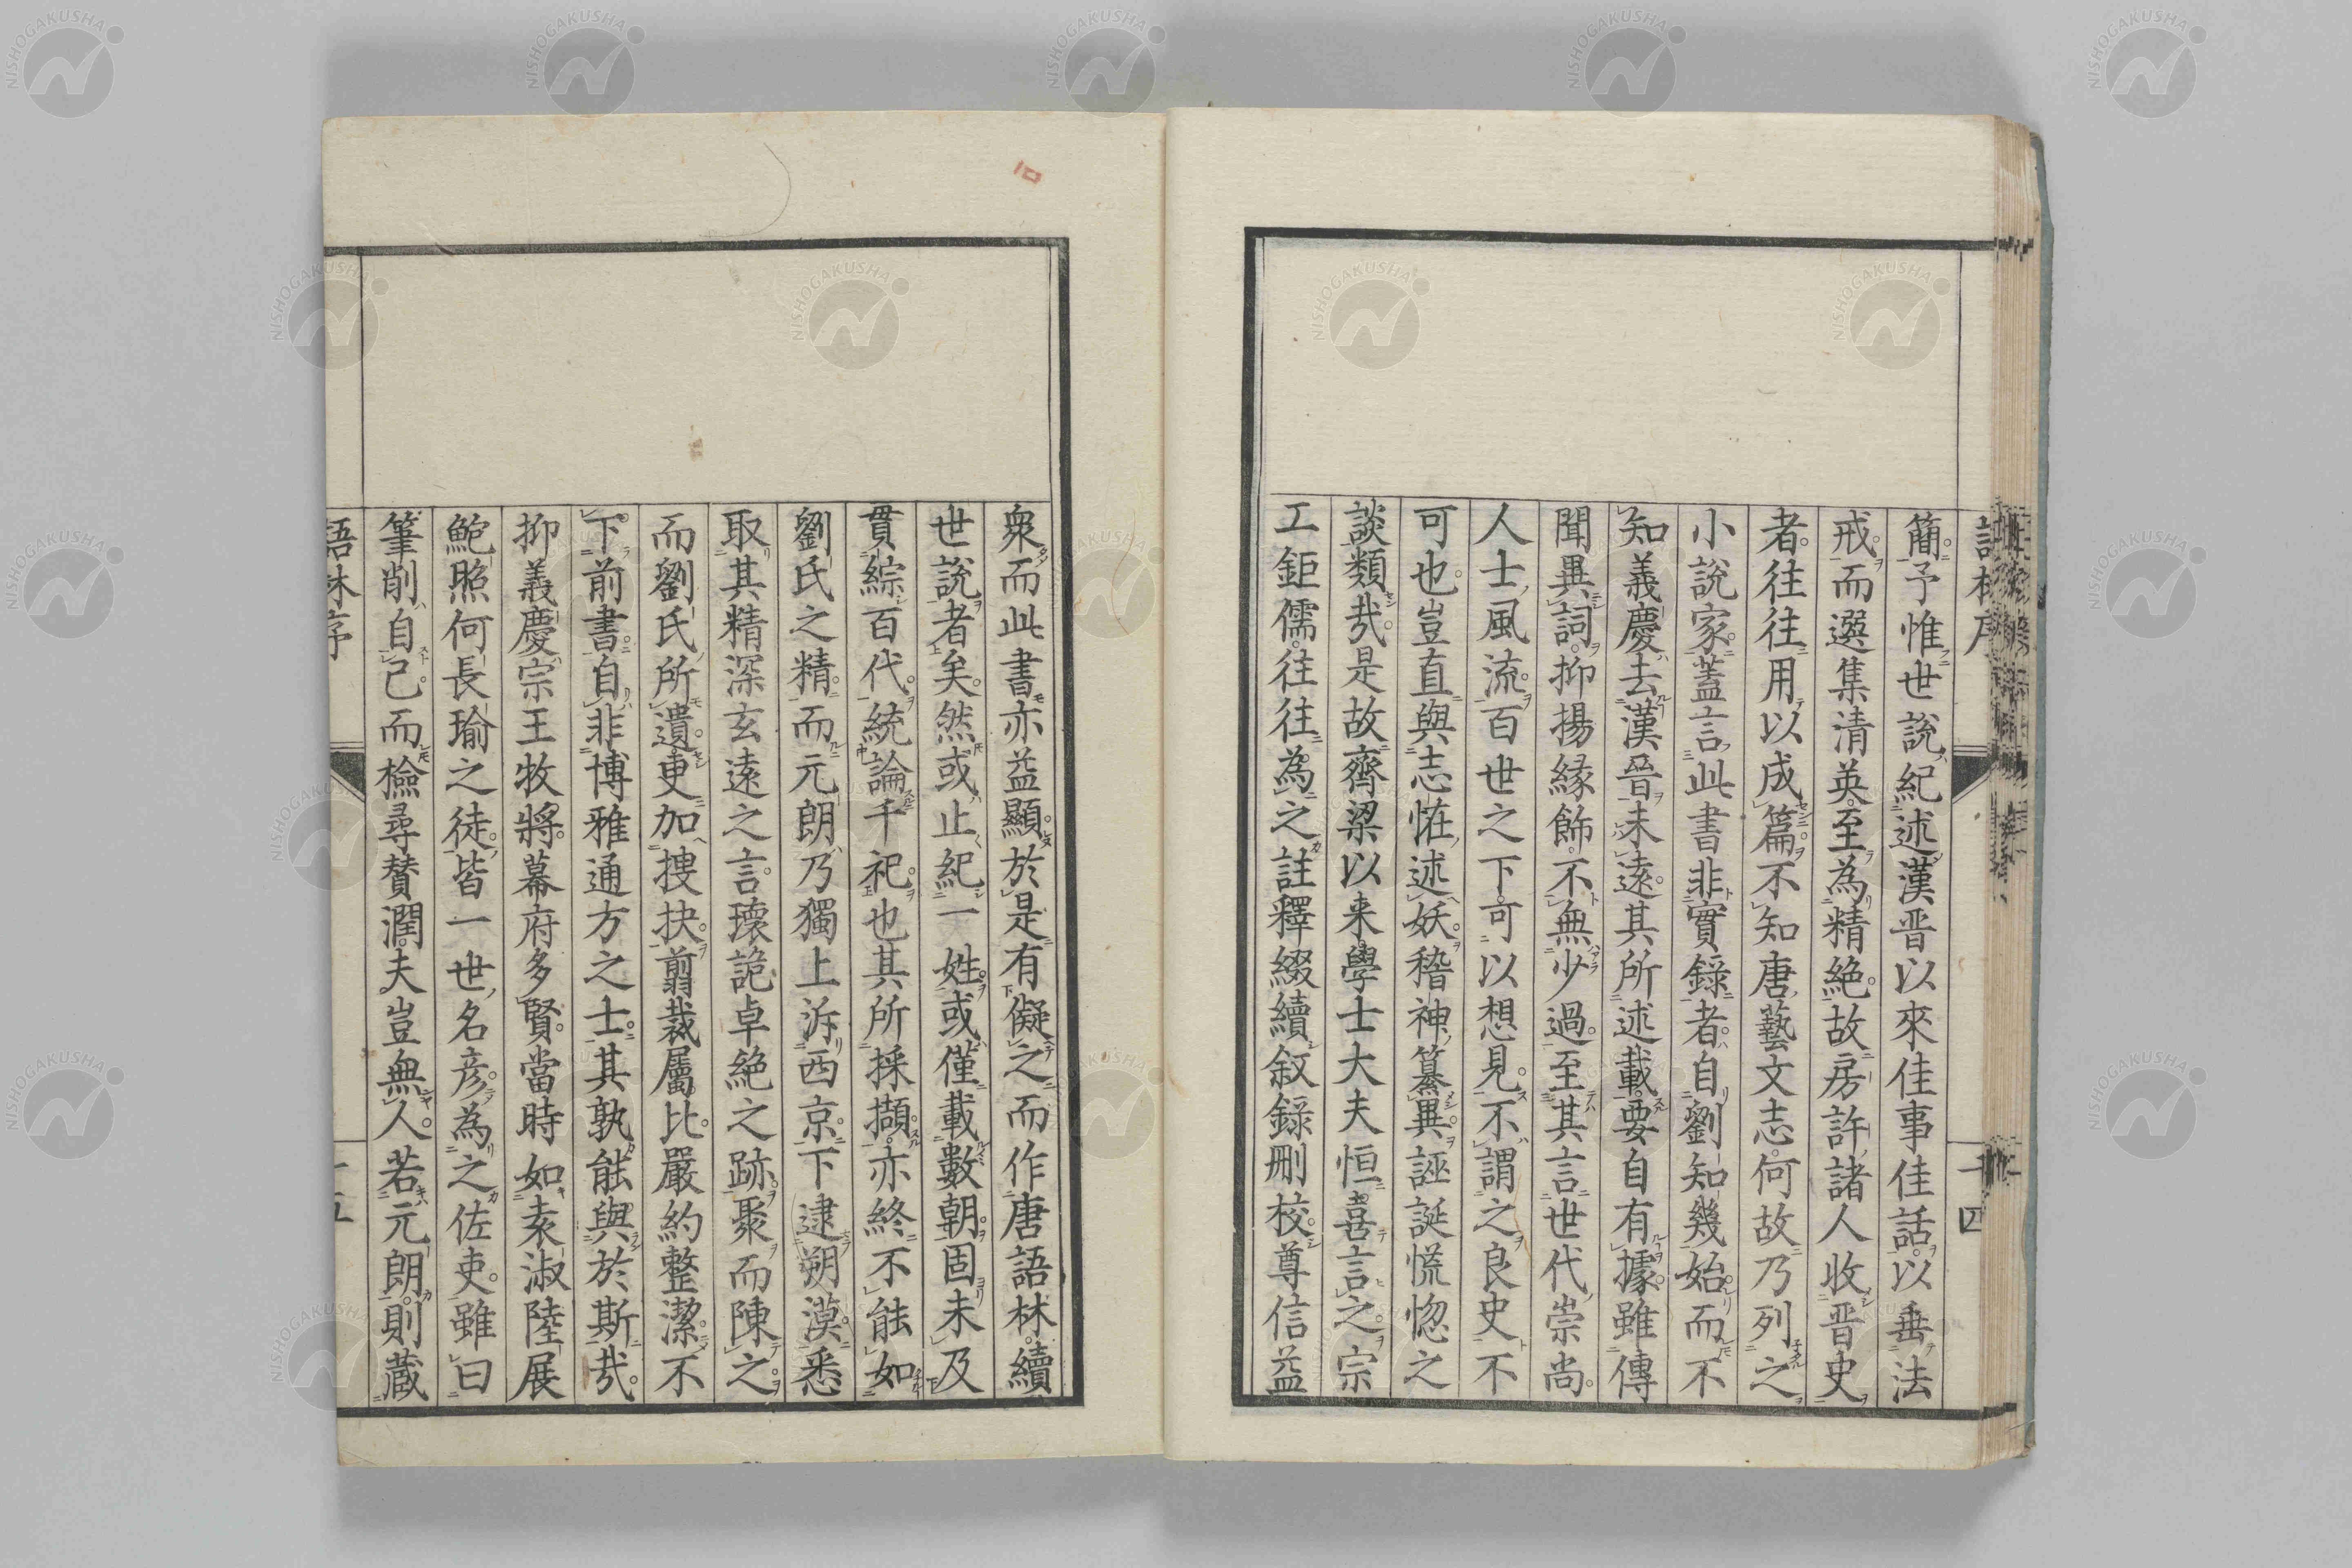 語林序
十四
簡予惟世說紀述漢晋以來佳事佳話以垂法
戒而選集清英至為精絶故房許諸人收晋史
者往往用以成篇不知唐藝文志何故乃列之
小說家蓋言此書非實録者自劉知幾始而不
知義慶去漢晉未遠其所述載要自有據雖傳
聞異詞抑揚縁飾不無少過至其言世代崇尚
人士風流百世之下可以想見不謂之良史不
可也豈直與志恠述妖稽神纂異誣誕慌惚之
談類㢤是故齊梁以来學士大夫恒喜言之宗
工鉅儒往往為之註釋綴續叙録刪校尊信益
衆而此書亦益顯於是有儗之而作唐語林續
世說者矣然或止紀一姓或僅載數朝固未及
貫綜百代統論千祀也其所採擷亦終不能如
劉氏之精而元朗乃獨上泝西京下逮朔漠悉
取其精深玄遠之言瓌詭卓絶之跡聚而陳之
而劉氏所遺更加捜抉翦裁屬比嚴約整潔不
下前書自非博雅通方之士其孰能與於斯㢤
抑義慶宗王牧將幕府多賢當時如袁淑陸展
鮑照何長瑜之徒皆一世名彦為之佐吏雖曰
筆削自己而檢尋賛潤夫豈無人若元朗則蔵
語林序
十五
NISHOGAKUSHA